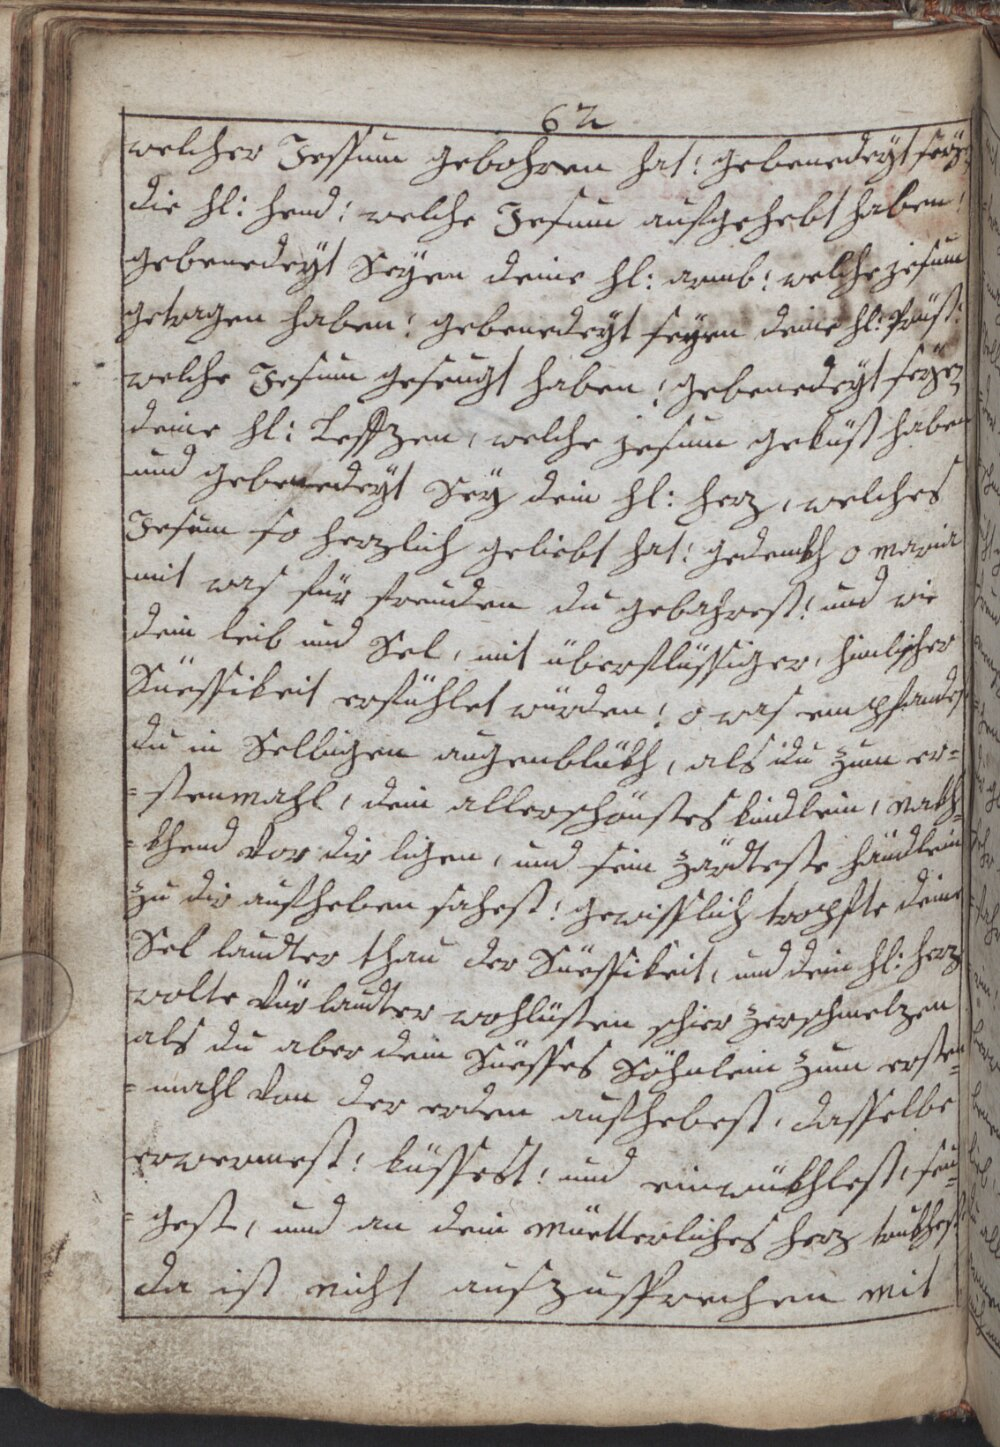 62
welcher Jessum gebohren hat! gebenedeyt seÿ
die hl: hend! welche Jesum aufgehebt haben!
gebenedeyt Seÿen deine hl: armb! welche jesum
getragen haben! gebenedeyt seÿen deine hl: Prüst!
welche Jesum geseugt haben! gebenedeyt seÿen
deine hl: Leffzen, welche jesum geküst haben
und gebenedeyt Seÿ dein hl: herz, welches
Jesum so herzlich geliebt hat! gedenckh o maria
mit was für freuden du gebahrest! und wie
dein leib und Sel, mit überflüssiger, himlischer
Süessikeit erfühlet würden! o was empfandest
du in Selbigen augenblükh, als du zum er=
=stenmahl, dein allerschönstes kindlein, nakh=
=khend vor dir ligen, und sein zärdteste händlein
zu dir aufheben sahest! gewisslich tropfte deine
Sel laudter thau der Süessikeit, und dein hl: herz
wolte vür laudter wohlüsten schier zerschmelzen
als du aber dein Süesses Söhnlein zum ersten=
=mahl von der erden aufhebest, dasselbe
erwermest! küssest! und einwükhlest, seu=
=gest, und an dein müetterliches herz trukhest
da ist nicht auszusprechen mit